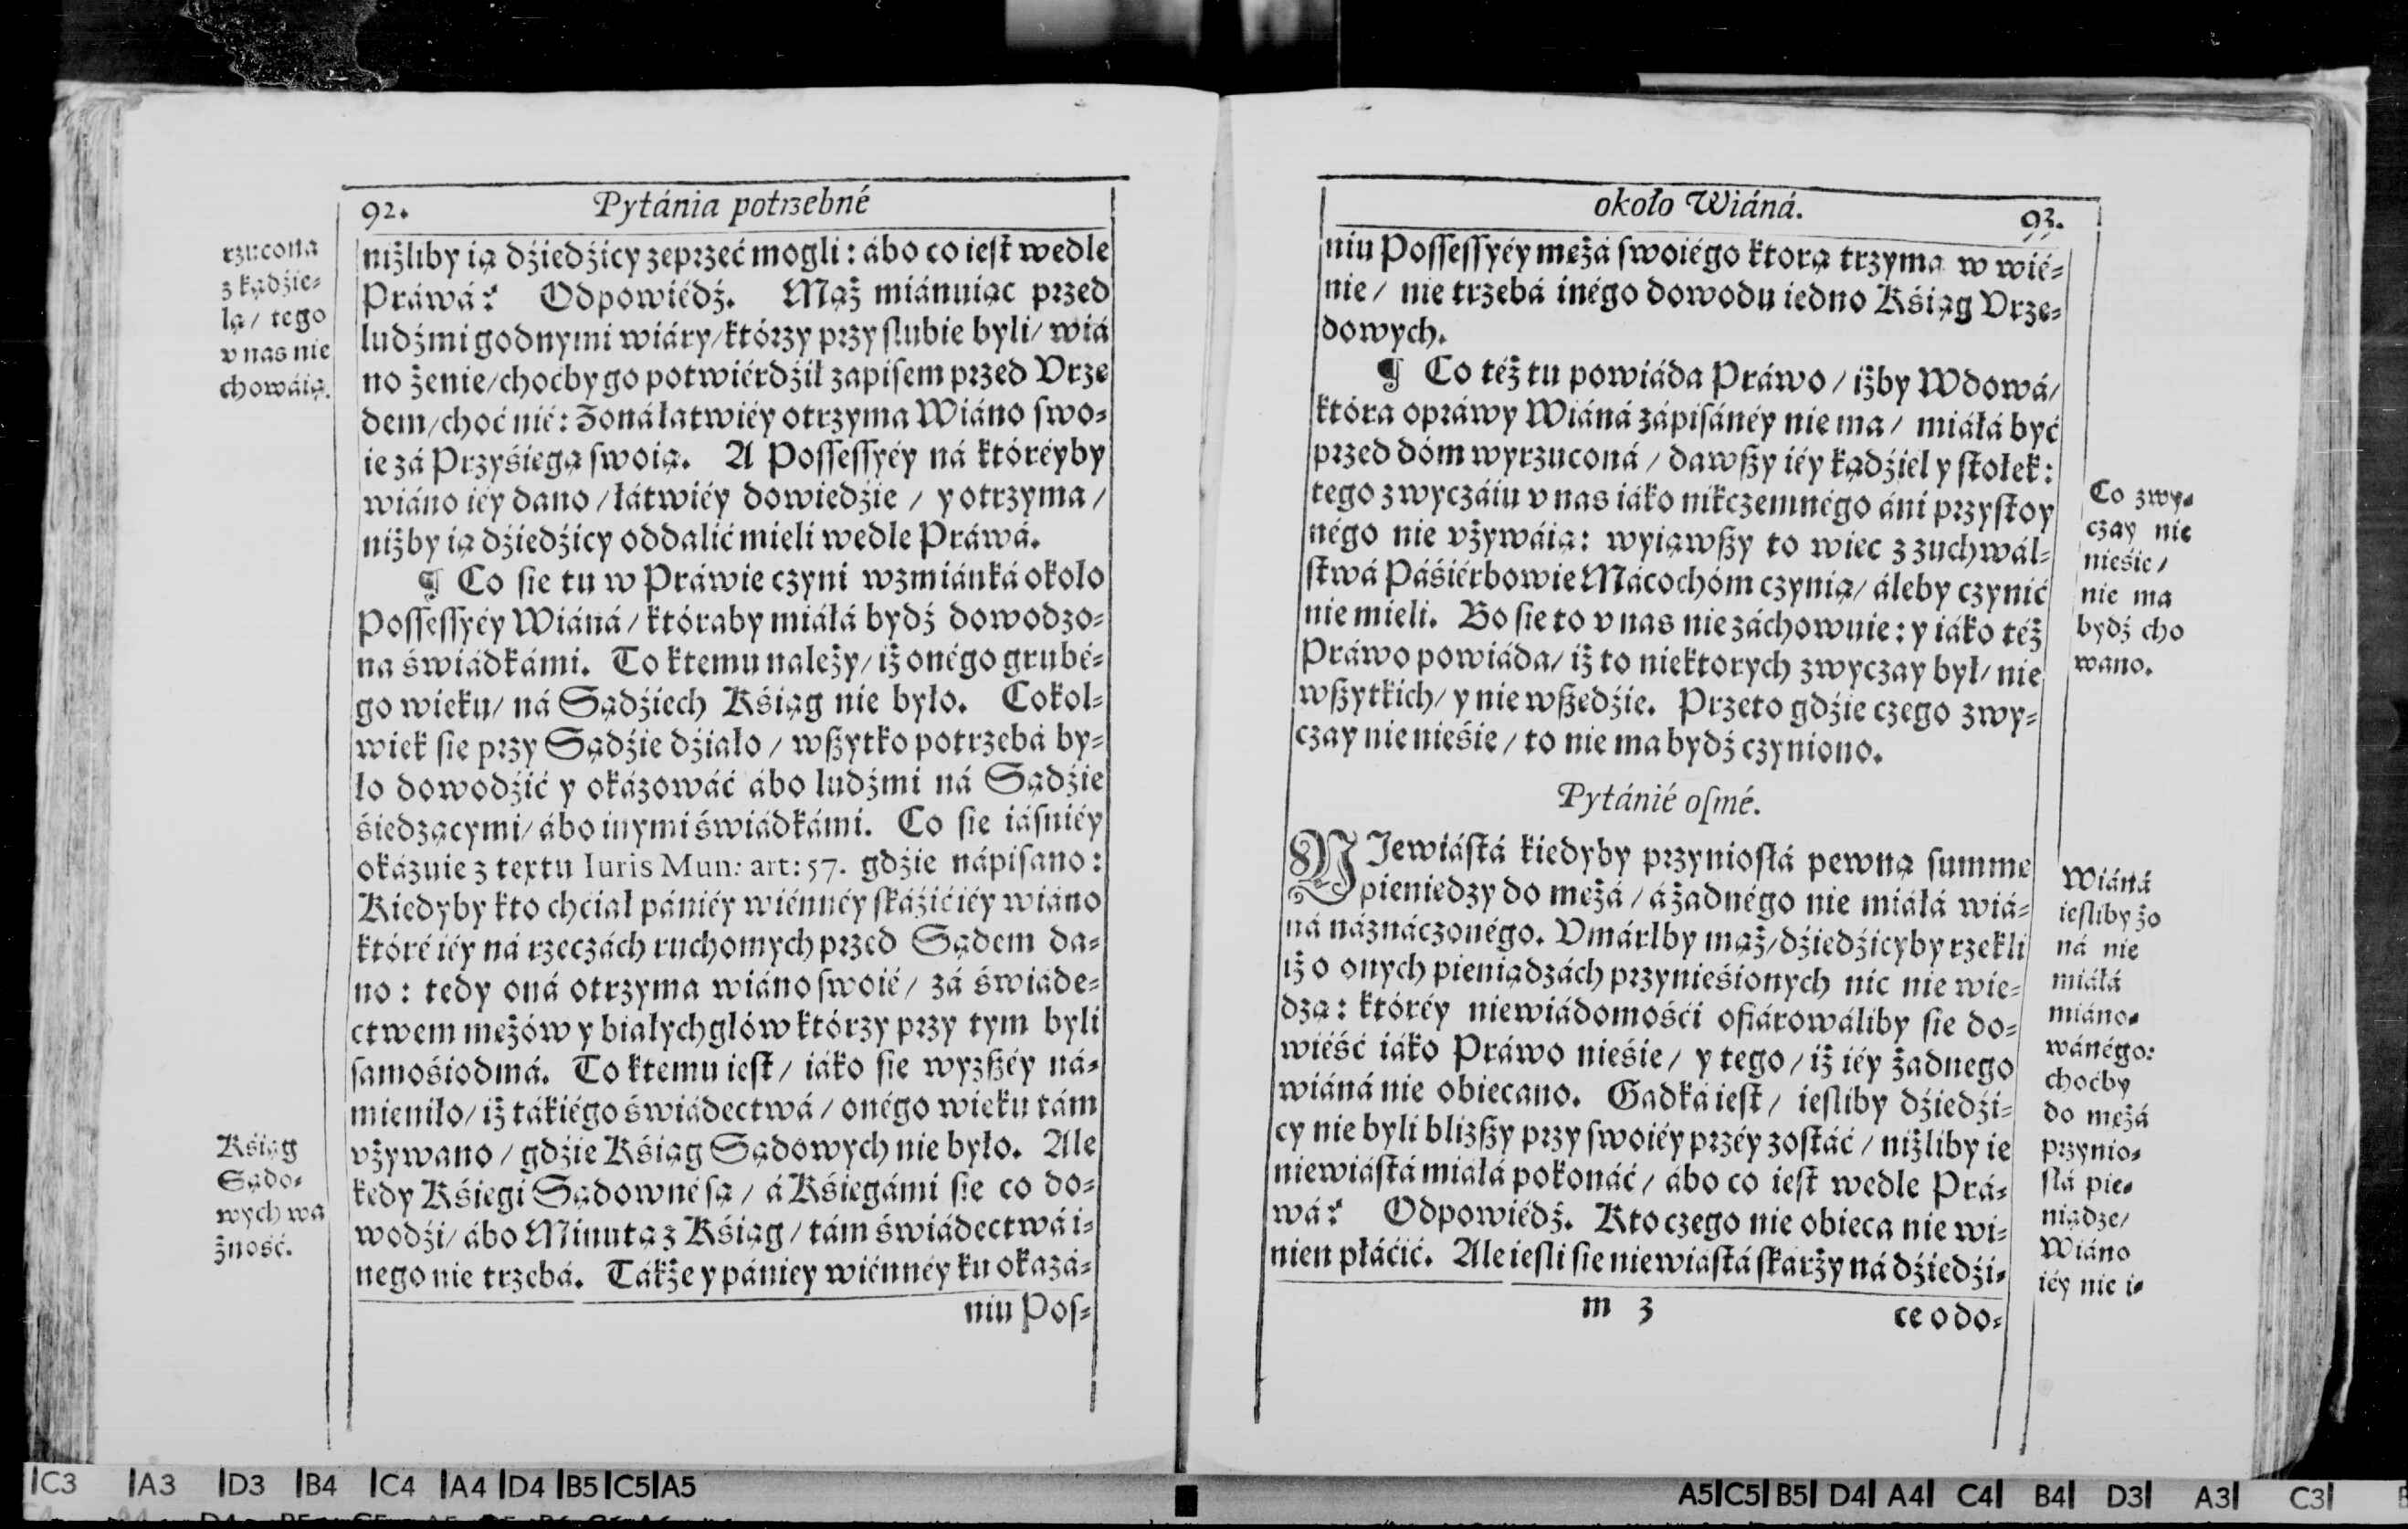 92.
Pytánia potrzebné
rzucona
z kądźie-
lą/ tego
v nas nie
chowáią.
niżliby ią dźiedźicy zeprzeć mogli: ábo co iest wedle
Práwá? Odpowiédź. Mąż miánuiąc przed
ludźmi godnymi wiáry/ którzy przy ślubie byli/ wiá
no żenie/ choćby go potwiérdźił zapisem przed Vrze
dem/ choć nié: Żoná łatwiéy otrzyma Wiáno swo-
ie zá Przyśiegą swoią. A Possessyéy ná któréyby
wiáno iéy dano/ łátwiéy dowiedźie/ y otrzyma/
niżby ią dźiedźicy oddalić mieli wedle Práwá.
¶ Co sie tu w Práwie czyni wzmiánká około
Possessyéy Wiáná/ któraby miáłá bydź dowodzo-
na świádkámi. To ktemu należy/ iż onégo grubé-
go wieku/ ná Sądźiech Kśiąg nie było. Cokol-
wiek sie przy Sądźie dźiało/ wszytko potrzebá by-
ło dowodźić y okázowáć ábo ludźmi ná Sądźie
śiedzącymi/ ábo inymi świádkámi. Co sie iáśniéy
okázuie z textu Iuris Mun: art: 57. gdźie nápisano:
Kiedyby kto chciał pániéy wiénnéy skáźić iéy wiáno
któré iéy ná rzeczách ruchomych przed Sądem da-
no: tedy oná otrzyma wiáno swoié/ zá świáde-
ctwem mężów y białychgłów którzy przy tym byli
samośiodmá. To ktemu iest/ iáko sie wyzszéy ná-
mieniło/ iż tákiégo świádectwá/ onégo wieku tám
vżywano/ gdźie Kśiąg Sądowych nie było. Ale
kedy Kśiegi Sądowné są/ á Kśiegámi sie co do-
wodźi/ ábo Minutą z Kśiąg/ tám świádectwá i-
nego nie trzebá. Tákże y pániey wiénnéy ku okazá-
Kśiąg
Sądo-
wych wa
żność.
niu Pos-
około Wiáná.
93.
niu Possessyéy meżá swoiégo ktorą trzyma w wié-
nie/ nie trzebá inégo dowodu iedno Kśiąg Vrze-
dowych.
¶ Co téż tu powiáda Práwo/ iżby Wdowá/
która opráwy Wiáná zápisánéy nie ma/ miáłá być
przed dóm wyrzuconá/ dawszy iéy kądźiel y stołek:
tego zwyczáiu v nas iáko nikczemnégo áni przystoy
négo nie vżywáią: wyiąwszy to wiec z zuchwál-
stwá Páśiérbowie Mácochóm czynią/ áleby czynić
nie mieli. Bo sie to v nas nie záchowuie: y iáko téż
Práwo powiáda/ iż to niektorych zwyczay był/ nie
wszytkich/ y nie wszedźie. Przeto gdźie czego zwy-
czay nie nieśie/ to nie ma bydź czyniono.
Co zwy-
czay nie
nieśie/
nie ma
bydź cho
wano.
Pytánié osmé.
NIewiástá kiedyby przyniosłá pewną summe
pieniedzy do meżá/ á żadnégo nie miáłá wiá-
ná náznáczonégo. Vmárłby mąż/ dźiedźicyby rzekli
iż o onych pieniądzách przynieśionych nic nie wie-
dzą: któréy niewiádomośći ofiárowáliby sie do-
wiéść iáko Práwo nieśie/ y tego/ iż iéy żadnego
wiáná nie obiecano. Gadka iest/ iesliby dźiedźi-
cy nie byli blizszy przy swoiéy przéy zostáć/ niżliby ie
niewiástá miáłá pokonáć/ ábo co iest wedle Prá-
wá? Odpowiédź. Kto czego nie obieca nie wi-
nien płáćić. Ale iesli sie niewiástá skárży ná dźiedźi-
Wiáná
iesliby żo
ná nie
miáłá
miáno-
wánégo:
choćby
do meżá
przynio-
słá pie-
niądze/
Wiáno
iéy nie i-
m 3
ce o do-
C3 A3 D3 B4 C4 A4 D4 B5 C5 A5
A5 C5 B5 D4 A4 C4 B4 D3 A3 C3